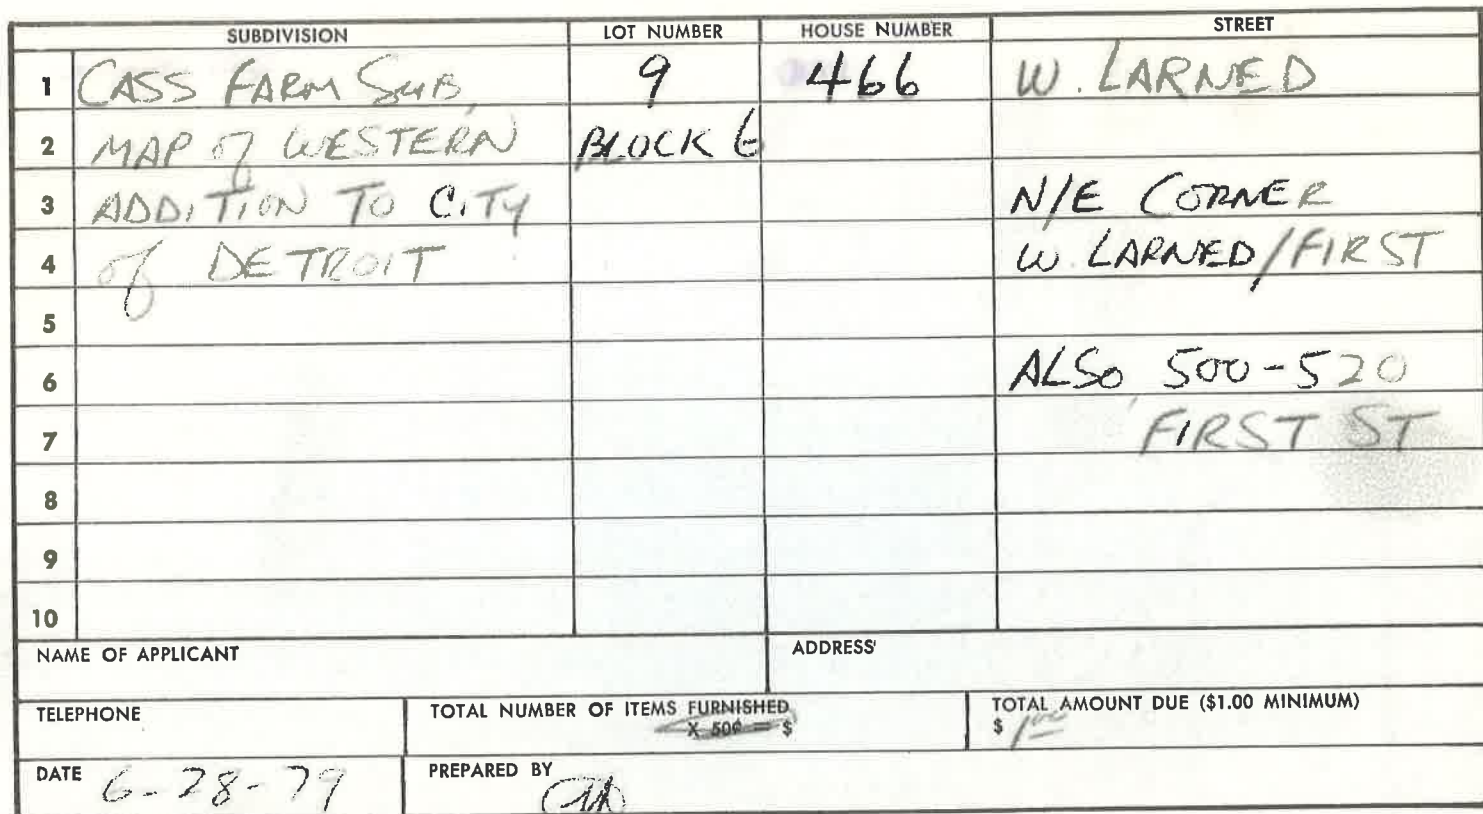 SUBDIVISION LOT NUMBER HOUSE NUMBER STREET
1 CASS FARM SUB, 9 466 W. LARNED
2 MAP of WESTERN BLOCK 6
3 ADDITION TO CITY N/E CORNER
4 of DETROIT W. LARNED/FIRST
5
6 ALSO 500-520
7 FIRST ST
8
9
10
NAME OF APPLICANT ADDRESS
TELEPHONE TOTAL NUMBER OF ITEMS FURNISHED TOTAL AMOUNT DUE ($1.00 MINIMUM)
X 50¢ = $ $ 1.00
DATE 6-28-79 PREPARED BY